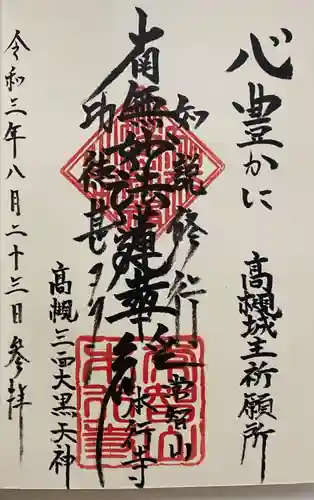 心豊かに
高槻城主祈願所
如説修行
南無妙法蓮華経
功徳甚多
常智山
本行寺
高槻三面大黒天神
令和三年八月二十三日参拝